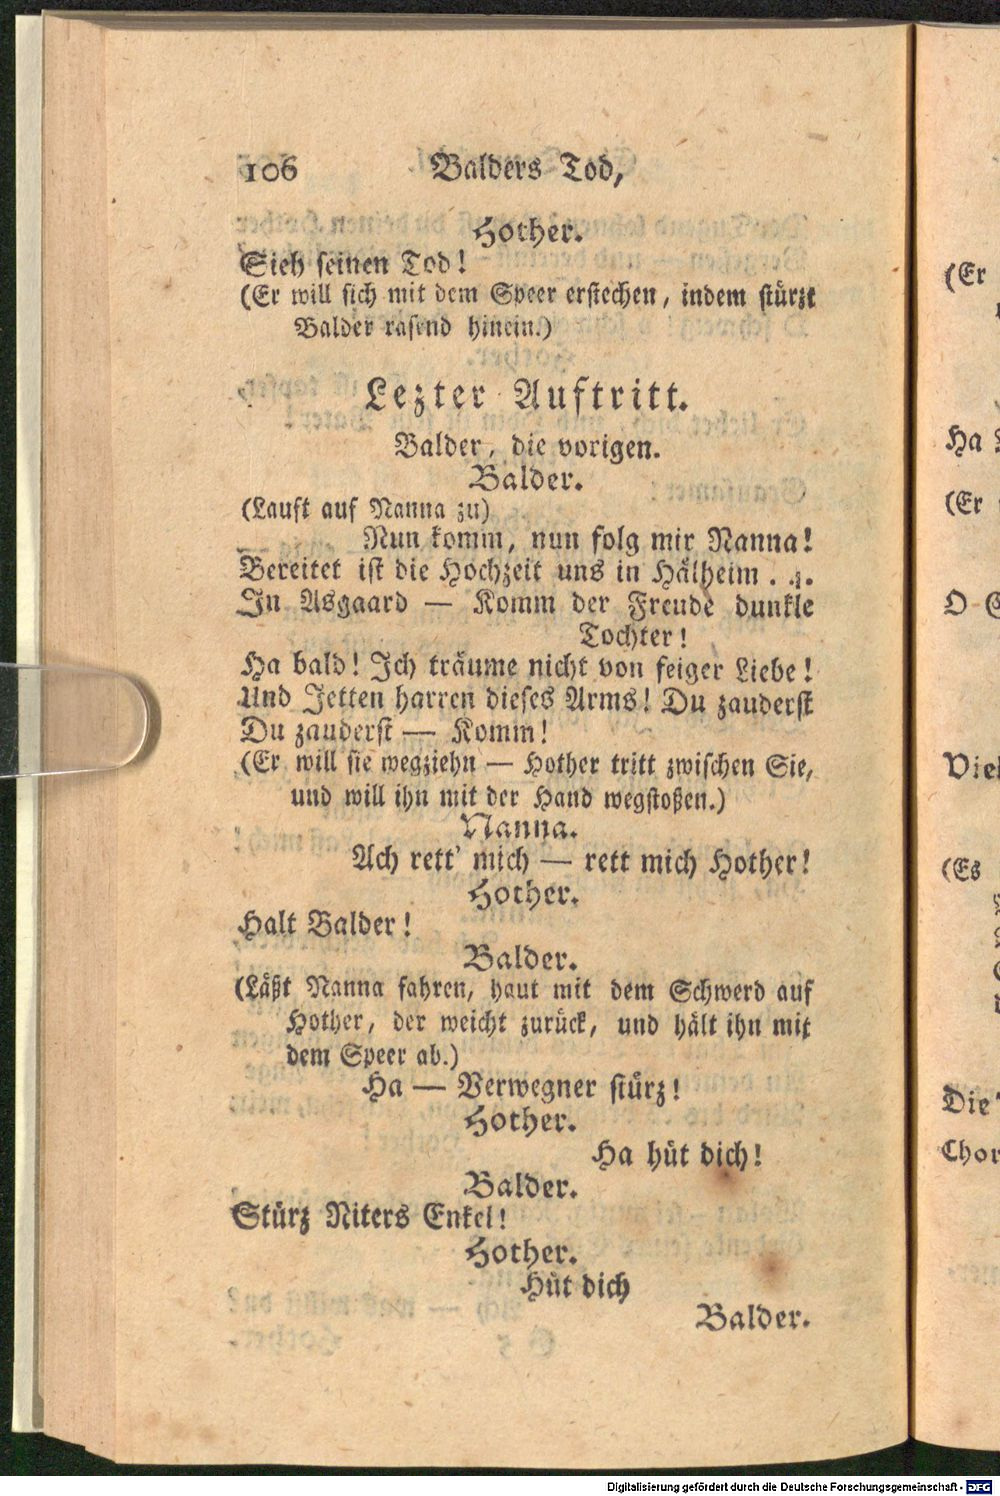 106 Balders Tod,
Hother.
Sieh seinen Tod!
(Er will sich mit dem Speer erstechen, indem stürzt
Balder rasend hinein.)
Lezter Auftritt.
Balder, die vorigen.
Balder.
(Lauft auf Nanna zu)
Nun komm, nun folg mir Nanna!
Bereitet ist die Hochzeit uns in Hälheim . . .
In Asgaard — Komm der Freude dunkle
Tochter!
Ha bald! Ich träume nicht von feiger Liebe!
Und Jetten harren dieses Arms! Du zauderst
Du zauderst — Komm!
(Er will sie wegziehn — Hother tritt zwischen Sie,
und will ihn mit der Hand wegstoßen.)
Nanna.
Ach rett' mich — rett mich Hother!
Hother.
Halt Balder!
Balder.
(Läßt Nanna fahren, haut mit dem Schwerd auf
Hother, der weicht zurück, und hält ihn mit
dem Speer ab.)
Ha — Verwegner stürz!
Hother.
Ha hüt dich!
Balder.
Stürz Niters Enkel!
Hother.
Hüt dich
Balder.
(Er
Ha
(Er
O
Viel
(Es
Die
Chor
Digitalisierung gefördert durch die Deutsche Forschungsgemeinschaft - DFG